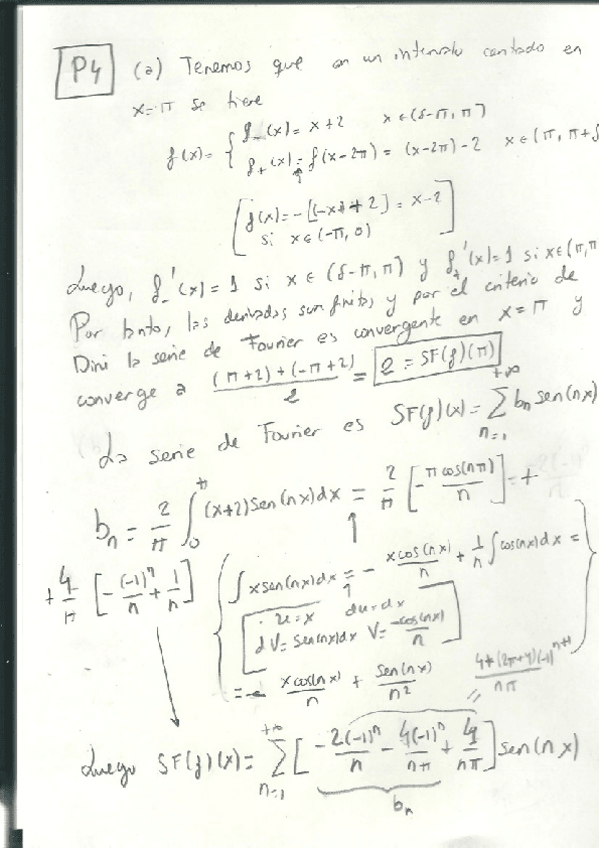 P4 (a) Tenemos que en un intervalo centado en
x=π se tiene
f(x)= { f_-(x)= x+2 x∈(δ-π,π)
f_+(x)= f(x-2π) = (x-2π)-2 x∈(π, π+δ
[ f(x)= -[(-x)+2] = x-2
si x∈(-π,0) ]
Luego, f_-'(x)=1 si x∈(δ-π,π) y f_+'(x)=1 si x∈(π,π
Por tanto, las derivadas son finitas y por el criterio de
Dini la serie de Fourier es convergente en x=π y
converge a ((π+2)+(-π+2))/2 = 2 = SF(f)(π)
La serie de Fourier es SF(f)(x)= ∑_{n=1}^{+∞} bn sen(nx)
bn = 2/π ∫_0^π (x+2)sen(nx)dx = 2/π [-π cos(nπ)/n] = +
+ 4/π [-(-1)^n/n + 1/n]
( ∫xsen(nx)dx = - xcos(nx)/n + 1/n ∫cos(nx)dx =
[ u=x du=dx
dV=sen(nx)dx V= -cos(nx)/n ]
= - xcos(nx)/n + sen(nx)/n² )
(4+(2π+4)(-1)^{n+1})/nπ
Luego SF(f)(x)= ∑_{n=1}^{+∞} [ -2(-1)^n/n - 4(-1)^n/nπ + 4/nπ ] sen(nx)
bn